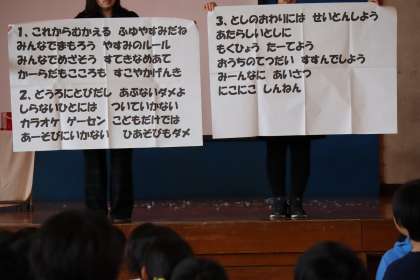 1、これからむかえる ふゆやすみだね
みんなでまもろう やすみのルール
みんなでめざそう すてきなめあて
からだもこころも すこやかげんき
2、どうろにとびだし あぶないダメよ
しらないひとには ついていかない
カラオケ ゲーセン こどもだけでは
あーそびにいかない ひあそびもダメ
3、としのおわりには せいとんしよう
あたらしいとしに
もくひょう たーてよう
おうちのてつだい すすんでしよう
みーんなに あいさつ
にこにこ しんねん